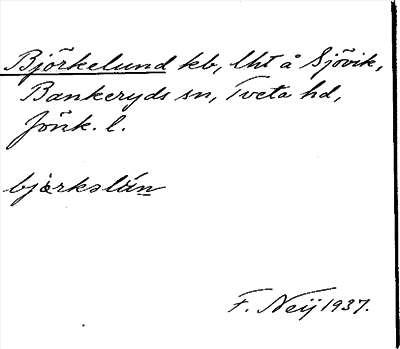 Björkelund kb, lht å Sjövik,
Bankeryds sn, Tveta hd,
Jönk. l.
bjærkəlún
F. Neij 1937.